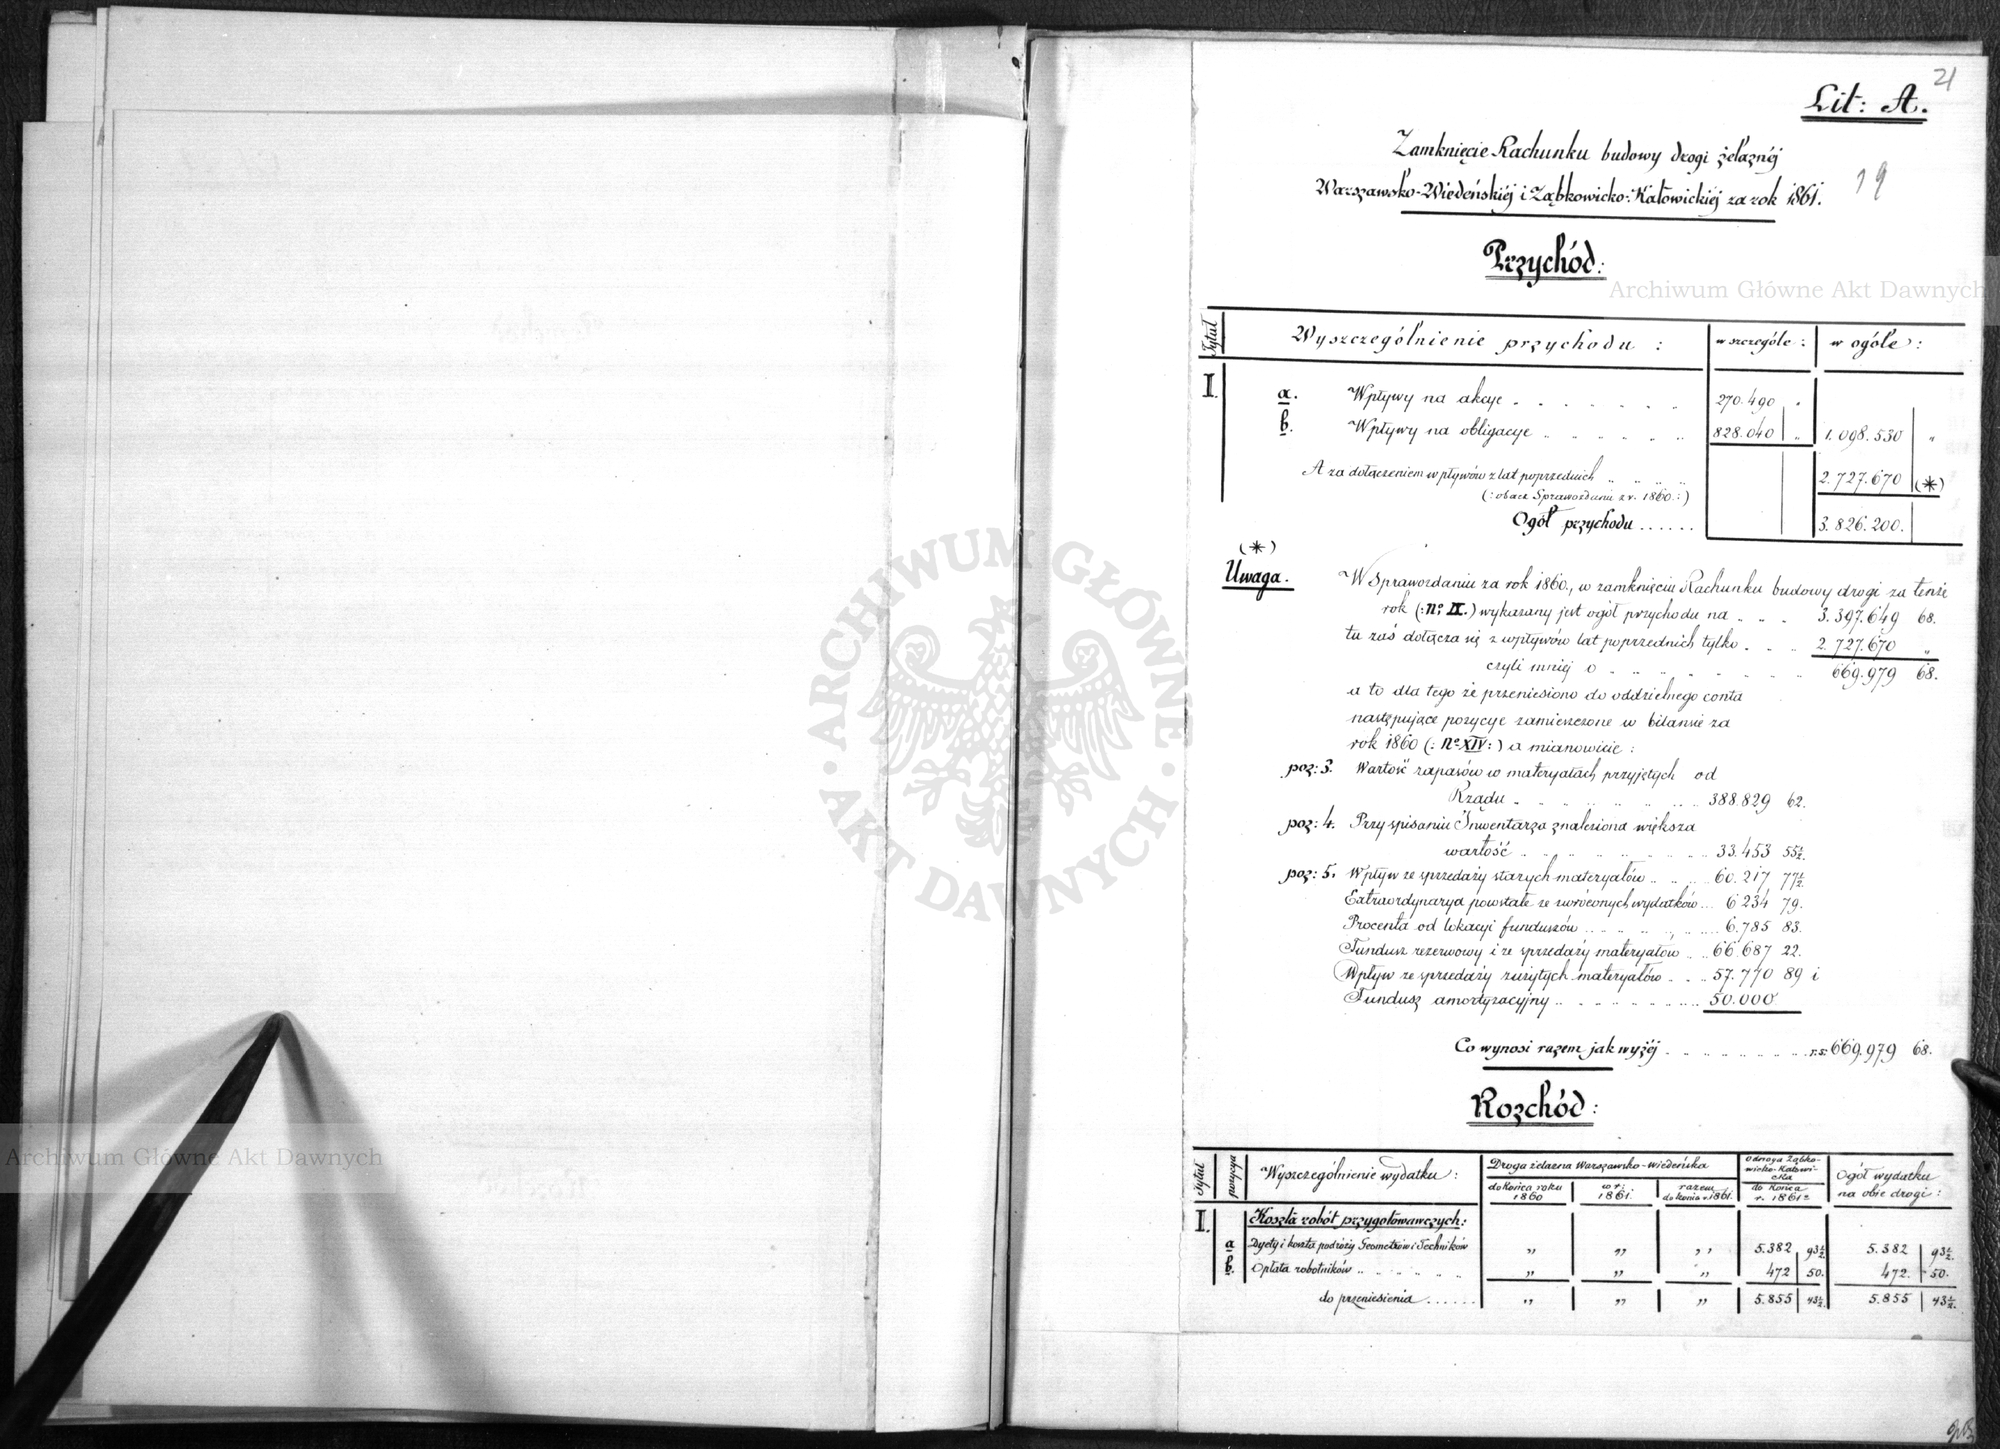 21
Lit: A.
Zamknięcie Rachunku budowy drogi żelaznéj
19
Warszawsko-Wiedeńskiéj i Ząbkowicko-Katowickiéj za rok 1861.
Przychód:
Archiwum Główne Akt Dawnych
Tytuł Wyszczególnienie przychodu: w szczególe: w ogóle:
I. a. Wpływy na akcye 270.490 "
b. Wpływy na obligacye 828.040 " 1.098.530 "
A za dołączeniem wpływów z lat poprzednich 2.727.670 (*)
(:obacz Sprawozdanie z r. 1860:)
Ogół przychodu 3.826.200.
(*)
Uwaga. W Sprawozdaniu za rok 1860, w zamknięciu Rachunku budowy drogi za tenże
rok (:No IX.) wykazany jest ogół przychodu na 3.397.649 68.
tu zaś dołącza się z wpływów lat poprzednich tylko 2.727.670 "
czyli mniéj o 669.979 68.
a to dla tego że przeniesiono do oddzielnego conta
następujące pozycye zamieszczone w bilansie za
rok 1860 (:No XIV:) a mianowicie:
poz: 3. Wartość zapasów w materyałach przyjętych od
Rządu 388.829 62.
poz: 4. Przy spisaniu Inwentarza znaleziona większa
wartość 33.453 55½.
poz: 5. Wpływ ze sprzedaży starych materyałów 60.217 77½.
Extraordynarya powstałe ze zwróconych wydatków 6 234 79.
Procenta od lokacyi funduszów 6.785 83.
Fundusz rezerwowy i ze sprzedaży materyałów 66.687 22.
Wpływ ze sprzedaży zużytych materyałów 57.770 89 i
Fundusz amortyzacyjny 50.000
Co wynosi razem jak wyżéj r.s. 669.979 68.
Rozchód:
Tytuł pozycya Wyszczególnienie wydatku: Droga żelazna Warszawsko-Wiedeńska Odnoga Ząbkowicko-Katowicka Ogół wydatku na obie drogi:
do końca roku 1860 w r: 1861. razem do końca r. 1861. do końca r. 1861
I. Koszta robót przygotowawczych:
a Dyety i koszta podróży Geometrów i Techników " " " 5.382 93½. 5.382 93½.
b. Opłata robotników " " " 472 50. 472. 50.
do przeniesienia " " " 5.855 43½. 5.855 43½.
Archiwum Główne Akt Dawnych
ARCHIWUM GŁÓWNE · AKT DAWNYCH ·